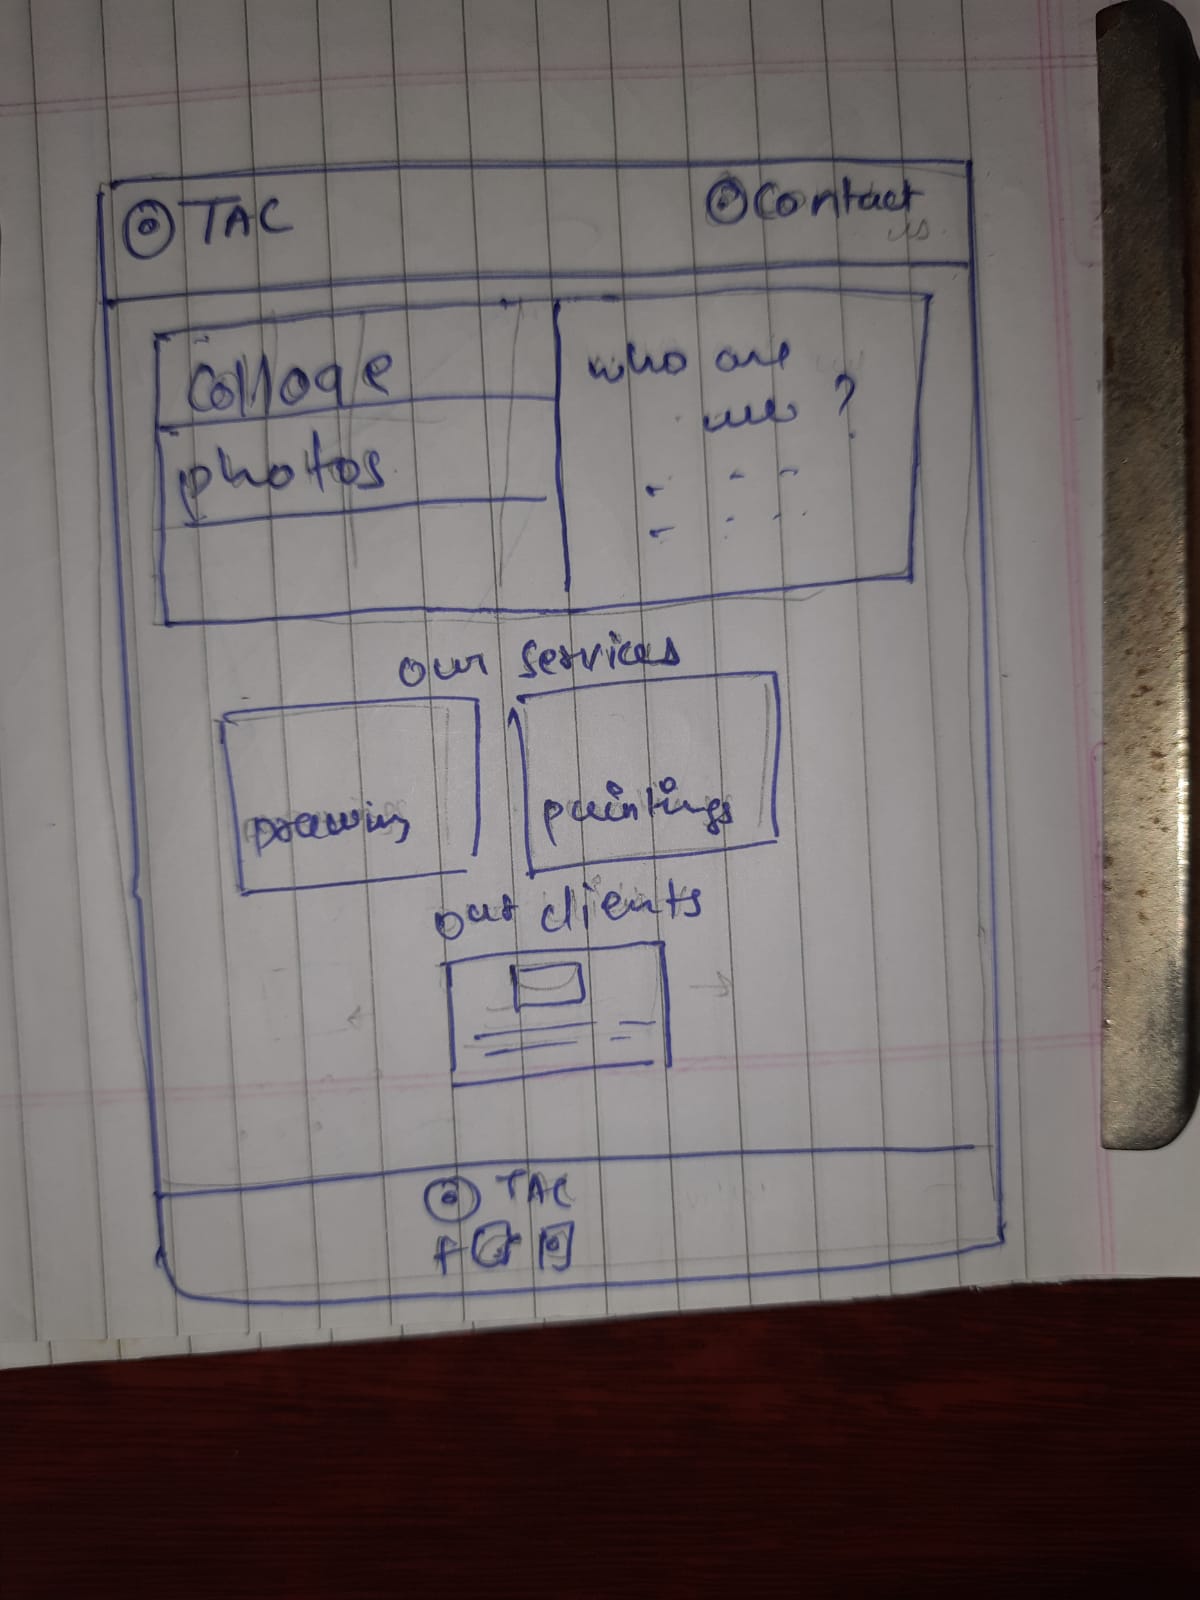 TAC
Contact
us
Collage
photos
who are
we ?
our services
Drawing
paintings
our clients
TAC
f